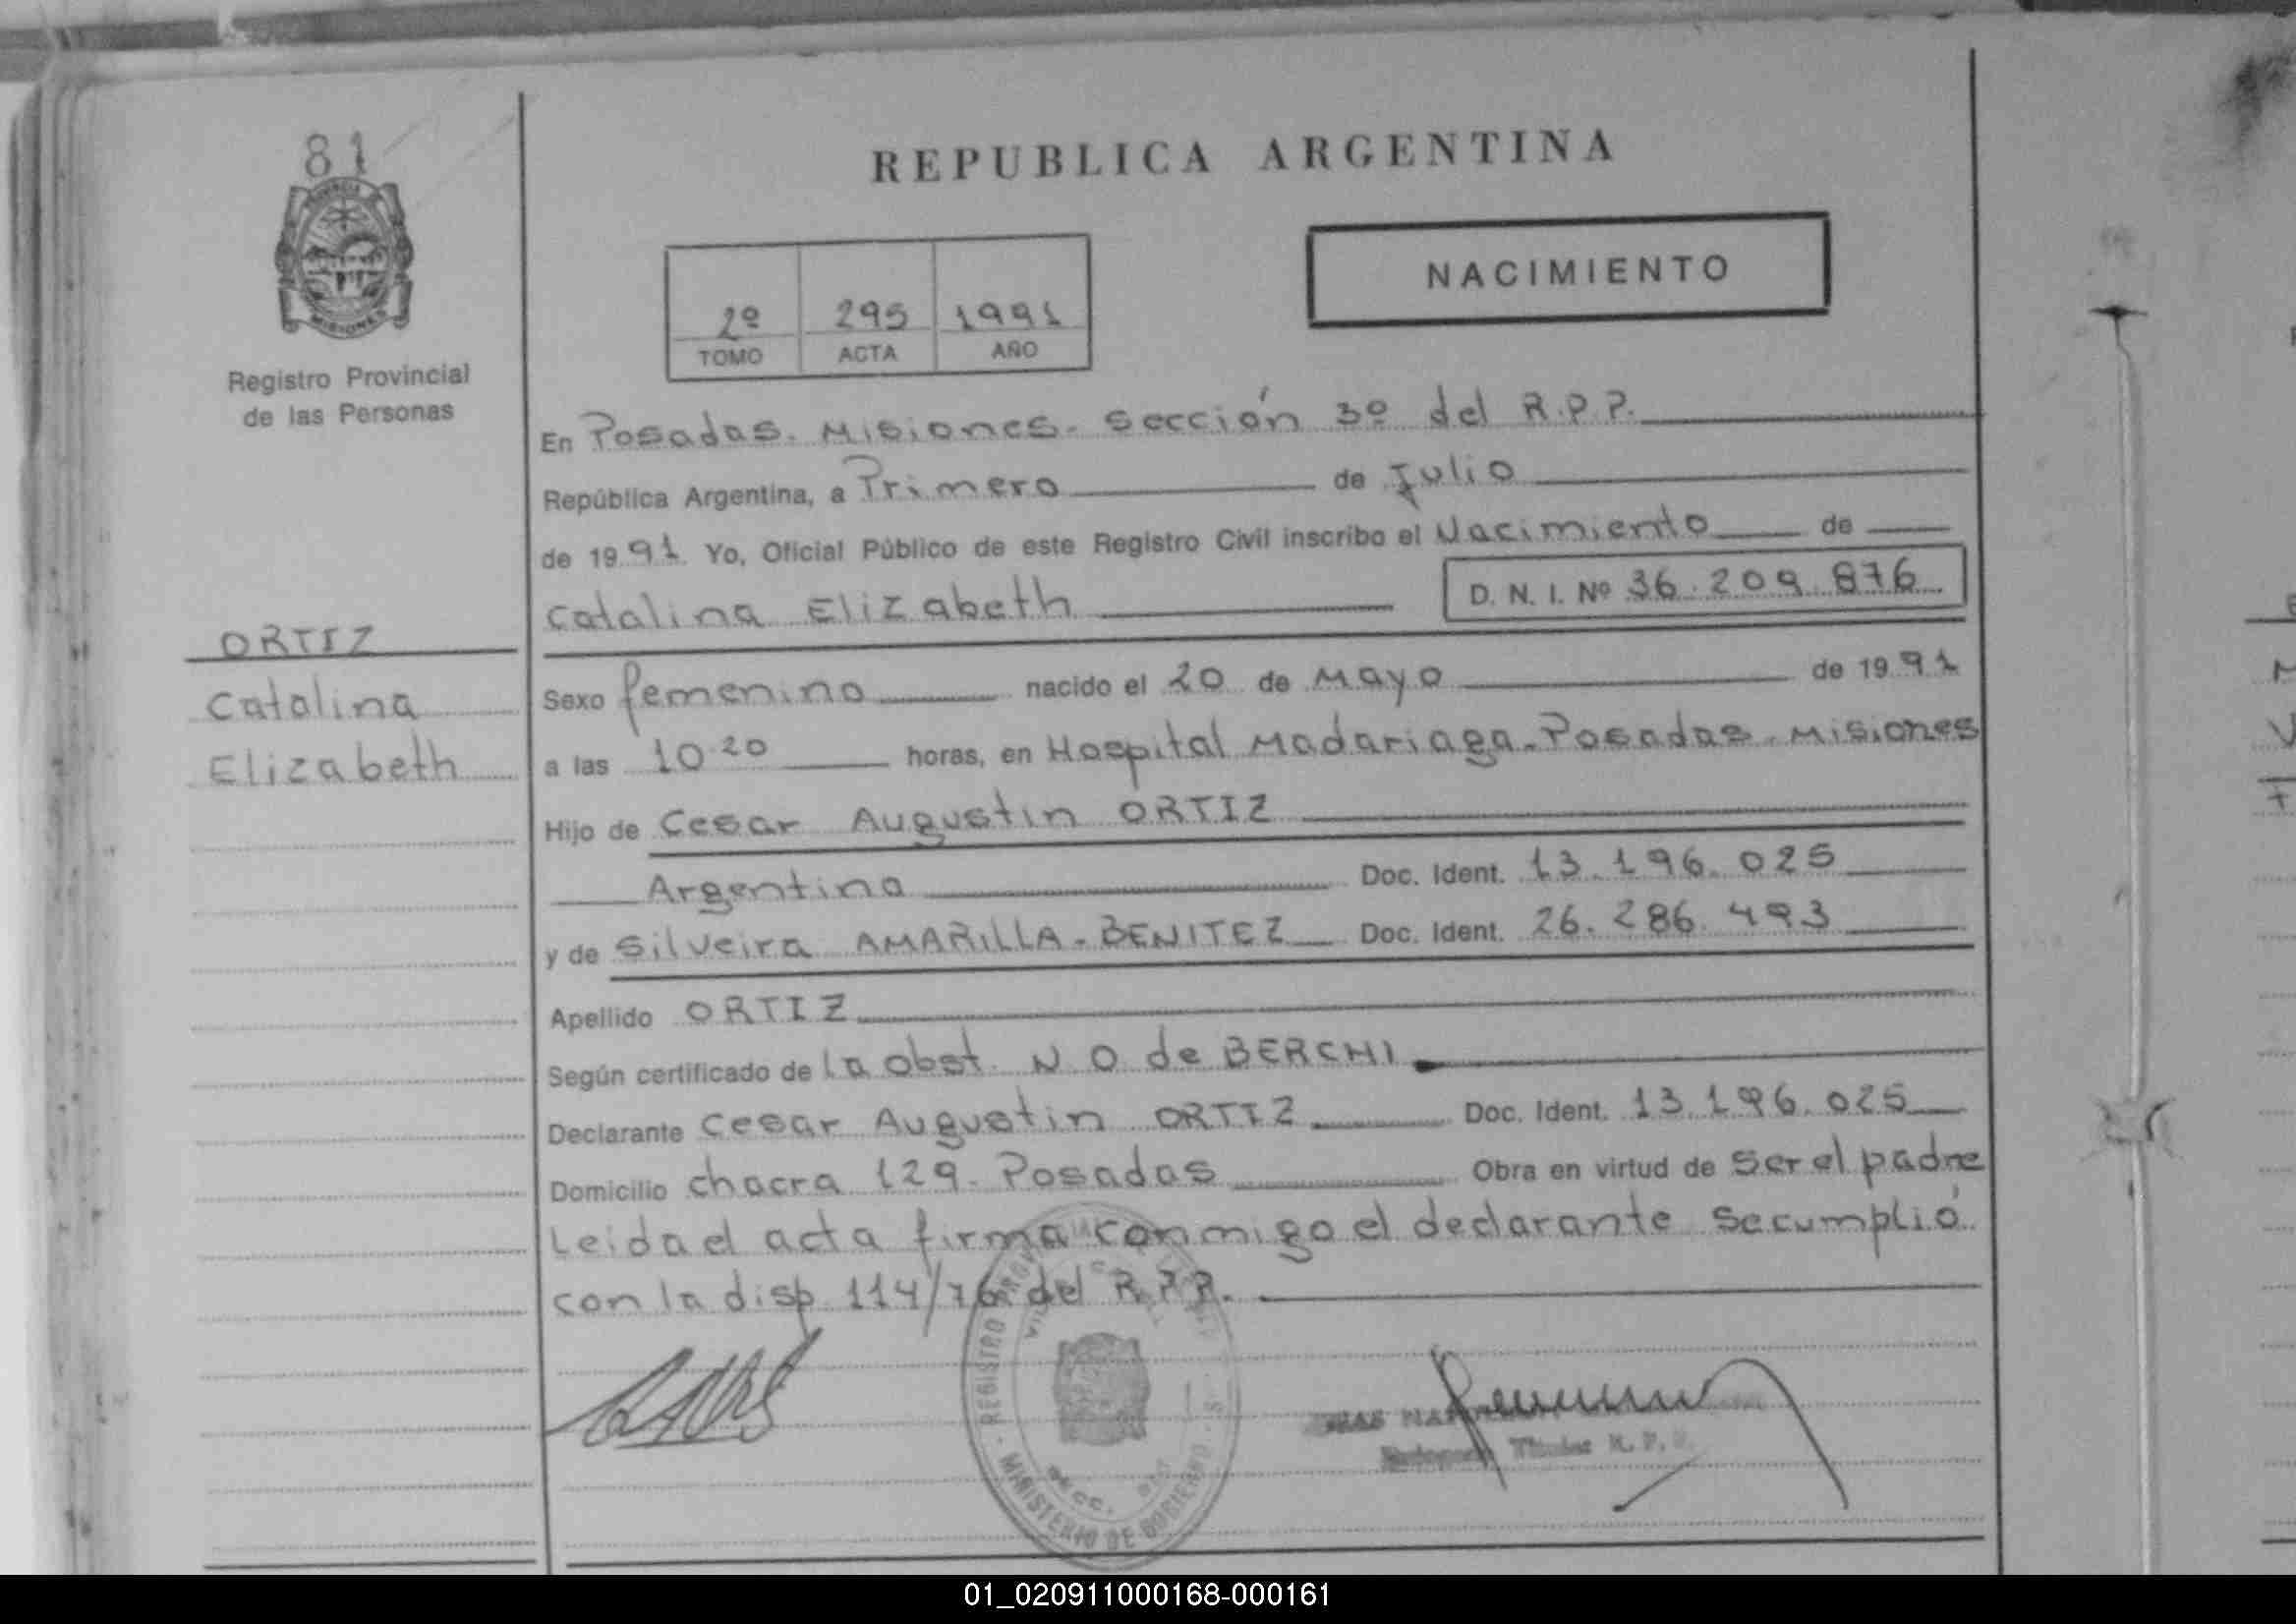 81
PROVINCIA
MISIONES
Registro Provincial
de las Personas
REPUBLICA ARGENTINA
2º 295 1991
TOMO ACTA AÑO
NACIMIENTO
En Posadas. Misiones. Sección 3º del R.P.P.
República Argentina, a Primero de Julio
de 1991 Yo, Oficial Público de este Registro Civil inscribo el Nacimiento de
Catalina Elizabeth D. N. I. Nº 36.209.876
ORTIZ
Catalina
Elizabeth
Sexo femenino nacido el 20 de Mayo de 1991
a las 10.20 horas, en Hospital Madariaga-Posadas-Misiones
Hijo de Cesar Augustin ORTIZ
Argentino Doc. Ident. 13.196.025
y de Silveira AMARILLA-BENITEZ Doc. Ident. 26.286.493
Apellido ORTIZ
Según certificado de la Obst. N. O. de BERCHI
Declarante Cesar Augustin ORTIZ Doc. Ident. 13.196.025
Domicilio chacra 129. Posadas Obra en virtud de ser el padre
Leida el acta firma conmigo el declarante se cumplió
con la disp. 114/76 del R.P.P.
REGISTRO
MINISTERIO DE GOBIERNO
Titular R. P. P.
01_020911000168-000161